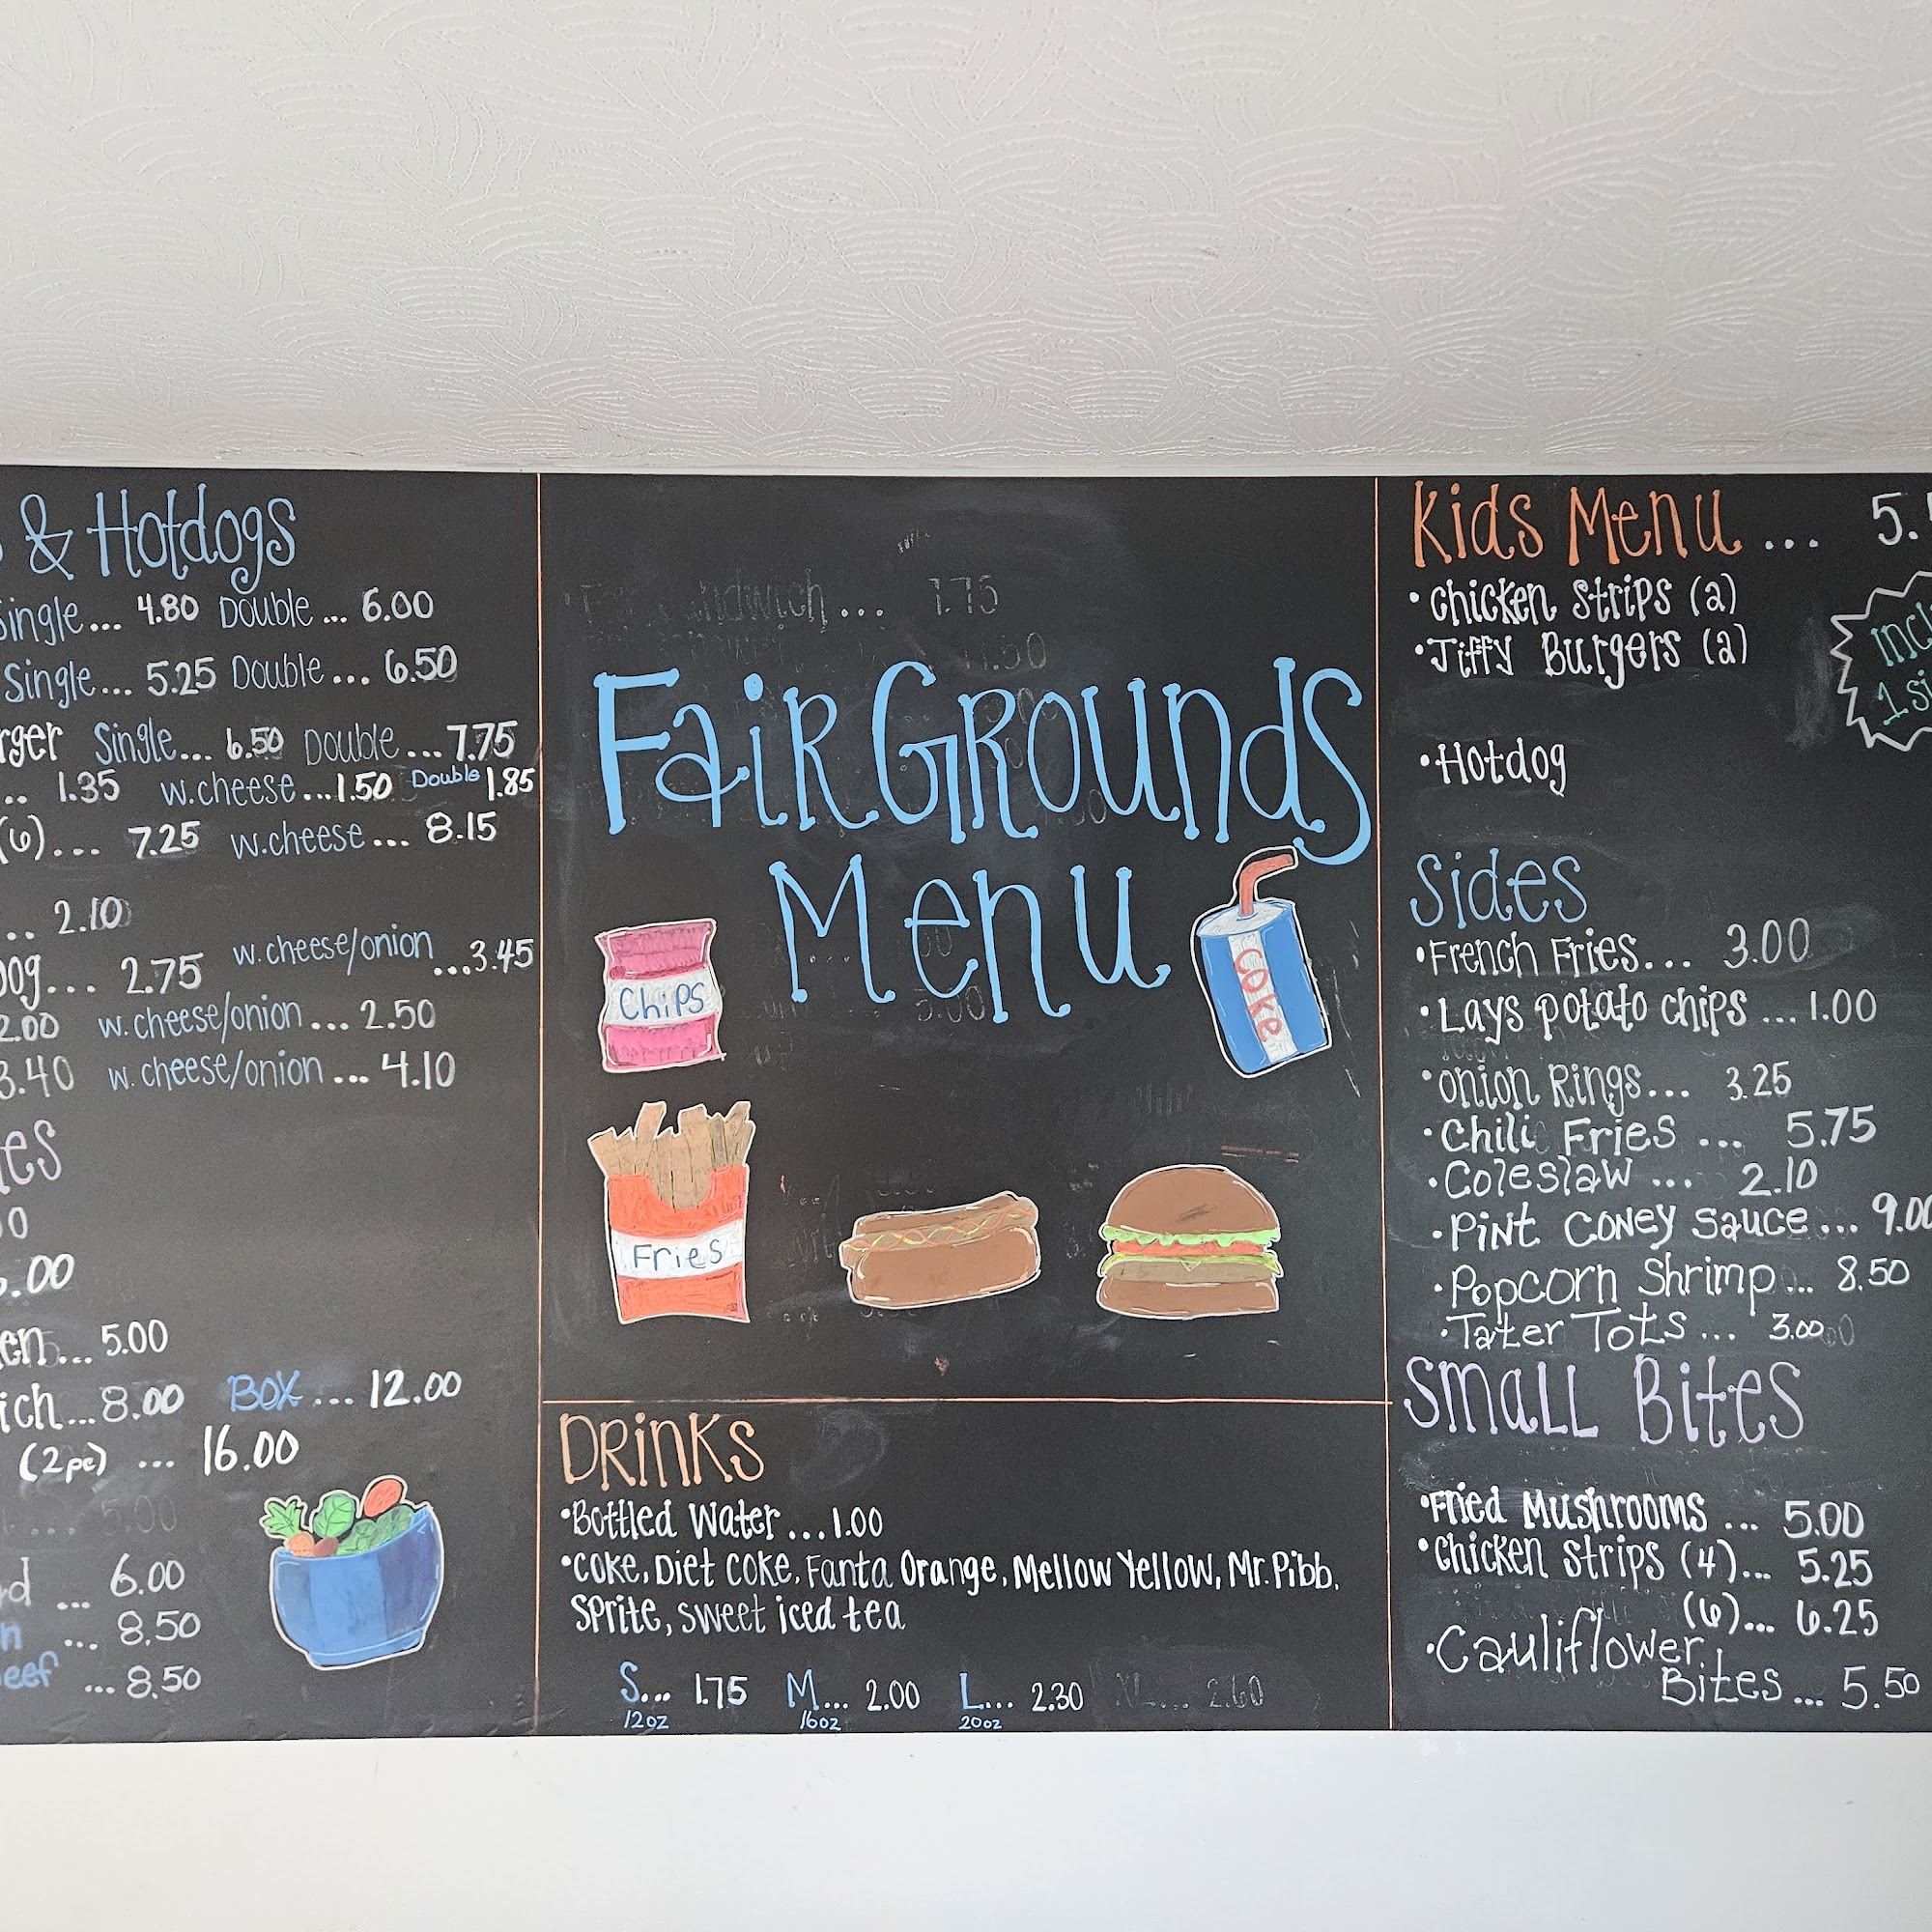 & Hotdogs
Single... 4.80 Double... 6.00
Single... 5.25 Double... 6.50
Single... 6.50 Double...7.75
.. 1.35 w.cheese...1.50 Double 1.85
(6)... 7.25 w.cheese... 8.15
.. 2.10
... 2.75 w.cheese/onion ...3.45
2.00 w.cheese/onion... 2.50
3.40 w.cheese/onion... 4.10
.00
...5.00
...8.00 BOX... 12.00
(2pc) ... 16.00
... 5.00
... 6.00
... 8.50
... 8.50
FairGrounds
Menu
Chips
coke
Fries
DRinks
•Bottled Water...1.00
•Coke, Diet Coke, Fanta Orange, Mellow Yellow, Mr. Pibb,
Sprite, sweet iced tea
S... 1.75 M... 2.00 L... 2.30 XL... 2.60
12oz 16oz 20oz
Kids Menu... 5.
•Chicken Strips (2)
•Jiffy Burgers (2)
•Hotdog
Sides
•French Fries... 3.00
•Lays potato chips ...1.00
•Onion Rings... 3.25
•Chili Fries ... 5.75
•Coleslaw ... 2.10
•Pint Coney Sauce... 9.00
•Popcorn Shrimp... 8.50
•Tater Tots... 3.00
Small Bites
•Fried Mushrooms ... 5.00
•Chicken Strips (4)... 5.25
(6)... 6.25
•Cauliflower
Bites... 5.50